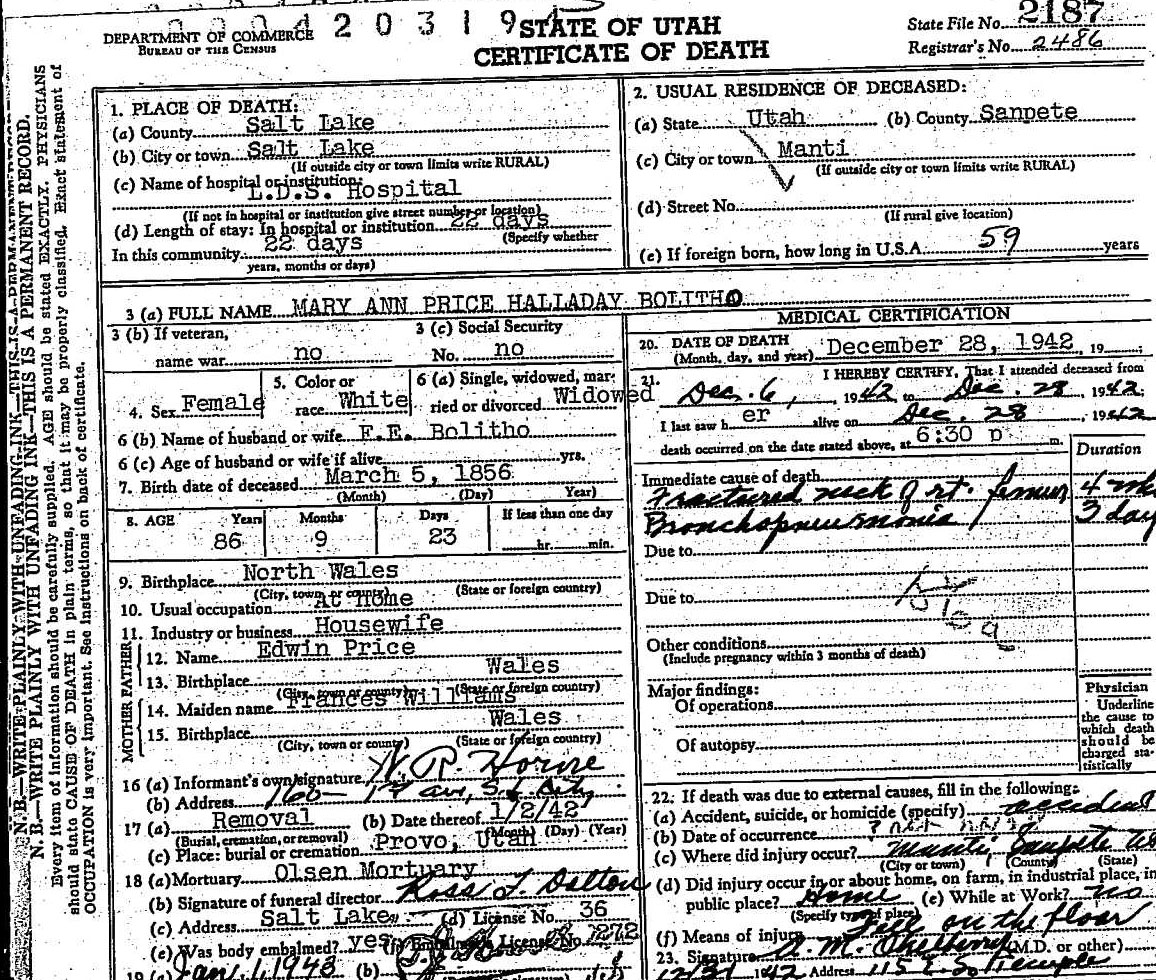 2 0 3 1 9
DEPARTMENT OF COMMERCE
BUREAU OF THE CENSUS
STATE OF UTAH
CERTIFICATE OF DEATH
State File No. 2187
Registrar's No. 2486
N. B.—WRITE PLAINLY WITH UNFADING INK—THIS IS A PERMANENT RECORD.
Every item of information should be carefully supplied. AGE should be stated EXACTLY. PHYSICIANS
should state CAUSE OF DEATH in plain terms, so that it may be properly classified. Exact statement of
OCCUPATION is very important. See instructions on back of certificate.
1. PLACE OF DEATH:
(a) County Salt Lake
(b) City or town Salt Lake
(If outside city or town limits write RURAL)
(c) Name of hospital or institution:
L.D.S. Hospital
(If not in hospital or institution give street number or location)
(d) Length of stay: In hospital or institution 22 days
(Specify whether
In this community 22 days
years, months or days)
2. USUAL RESIDENCE OF DECEASED:
(a) State Utah (b) County Sanpete
(c) City or town Manti
(If outside city or town limits write RURAL)
(d) Street No.
(If rural give location)
(e) If foreign born, how long in U.S.A. 59 years
3 (a) FULL NAME MARY ANN PRICE HALLADAY BOLITHO
3 (b) If veteran, name war no
3 (c) Social Security No. no
4. Sex Female
5. Color or race White
6 (a) Single, widowed, married or divorced Widowed
6 (b) Name of husband or wife F.E. Bolitho
6 (c) Age of husband or wife if alive yrs.
7. Birth date of deceased March 5, 1856
(Month) (Day) Year)
8. AGE Years Months Days If less than one day
86 9 23 hr. min.
9. Birthplace North Wales
(City, town or county) (State or foreign country)
10. Usual occupation At Home
11. Industry or business Housewife
FATHER
12. Name Edwin Price
13. Birthplace Wales
(City, town or county) (State or foreign country)
MOTHER
14. Maiden name Frances Williams
15. Birthplace Wales
(City, town or county) (State or foreign country)
16 (a) Informant's own signature R. Horne
(b) Address 160 - 1st ave, S.L. City
17 (a) Removal (b) Date thereof 1/2/42
(Burial, cremation, or removal) (Month) (Day) (Year)
(c) Place: burial or cremation Provo, Utah
18 (a) Mortuary Olsen Mortuary
(b) Signature of funeral director Ross T. Dalton
(c) Address Salt Lake (d) License No. 36
(e) Was body embalmed? yes (f) Embalmers License No. 272
19 (a) Jan 1, 1943 (b)
MEDICAL CERTIFICATION
20. DATE OF DEATH
(Month, day, and year) December 28, 1942, 19
21. I HEREBY CERTIFY, That I attended deceased from
Dec. 6, 1942 to Dec. 28, 1942.
I last saw h er alive on Dec. 28, 1942
death occurred on the date stated above, at 6:30 p m.
Duration
Immediate cause of death
Fractured neck of rt. femur 4 wk
Bronchopneumonia 3 day
Due to
Due to
Other conditions
(Include pregnancy within 3 months of death)
Major findings:
Of operations
Of autopsy
Physician
Underline
the cause to
which death
should be
charged sta-
tistically
22. If death was due to external causes, fill in the following:
(a) Accident, suicide, or homicide (specify) accident
(b) Date of occurrence
(c) Where did injury occur? Manti Sanpete
(City or town) (County) (State)
(d) Did injury occur in or about home, on farm, in industrial place, in
public place? Home (e) While at Work? no
(Specify type of place)
(f) Means of injury Fell on the floor
23. Signature (M.D. or other)
12/31 1942 Address 115 E. So. Temple